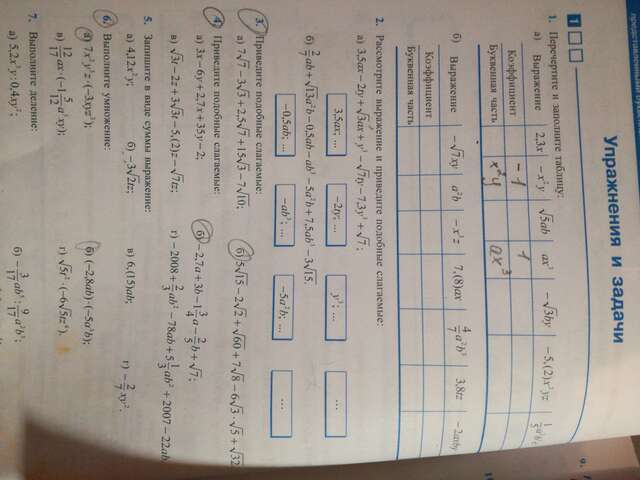 Упражнения и задачи
1
1. Перечертите и заполните таблицу:
а) Выражение 2,3x −x²y √5ab ax³ −√3by −5,(2)x²yz
Коэффициент −1 1
Буквенная часть x²y ax³
б) Выражение −√7xy a²b −x³z 7,(8)ax 4/7 a²b³ 3,8tz −2aby
Коэффициент
Буквенная часть
2. Рассмотрите выражение и приведите подобные слагаемые:
а) 3,5ax − 2ty + √3ax + y³ − √7ty − 7,3y³ + √7;
3,5ax; ... −2ty; ... y³; ... ...
б) 2/7 ab + √13a²b − 0,5ab − ab³ − 5a²b + 7,5ab³ − 3√15.
−0,5ab; ... −ab³; ... −5a²b; ... ...
3. Приведите подобные слагаемые:
а) 7√7 − 3√3 + 2,5√7 + 15√3 − 7√10; б) 5√15 − 2√2 + √60 + 7√8 − 6√3 · √5 + √32
4. Приведите подобные слагаемые:
а) 3x − 6y + 2,7x + 35y − 2; б) −2,7a + 3b − 1 3/4 a − 2/5 b + √7;
в) √3t − 2z + 3√3t − 5,(2)z − √7tz; г) −2008 + 2/3 ab² − 78ab + 5 1/3 ab² + 2007 − 22ab
5. Запишите в виде суммы выражение:
а) 4,12x²y; б) −3√2tz; в) 6,(15)ab; г) −2/7 xy².
6. Выполните умножение:
а) 7x²y³z · (−3xyz²); б) (−2,8ab) · (−5a³b);
в) 12/17 ax · (−1 5/12 a³xy); г) √5t² · (−6√5tz⁴).
7. Выполните деление:
а) 5,2x³y : 0,4xy²; б) −3/17 ab⁵ : 9/17 a²b³;
9.